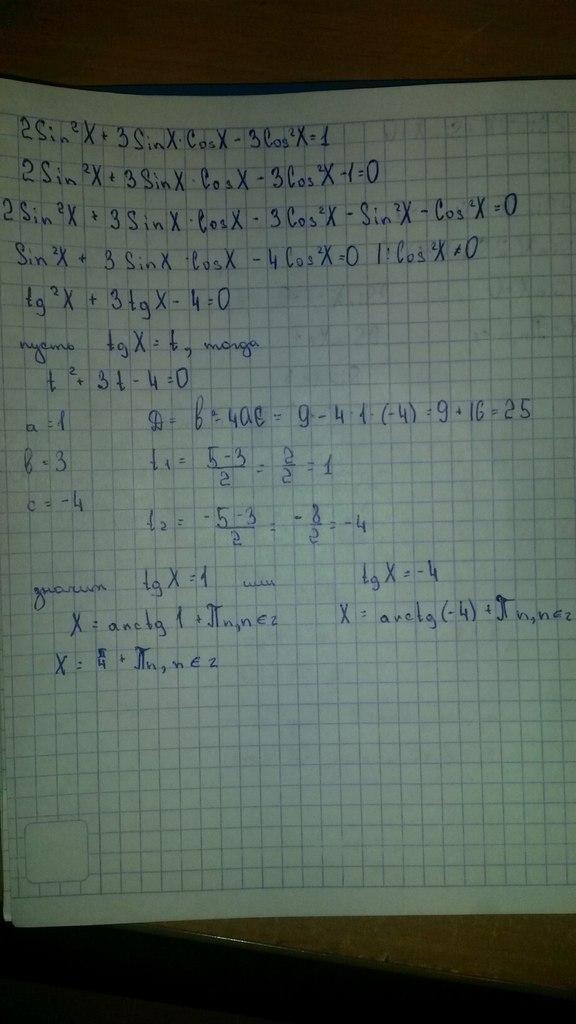 2Sin²X + 3SinX·CosX - 3Cos²X=1
2Sin²X + 3SinX · CosX - 3Cos²X-1=0
2Sin²X + 3SinX · CosX - 3Cos²X - Sin²X - Cos²X=0
Sin²X + 3SinX · CosX - 4Cos²X=0 |:Cos²X≠0
tg²X + 3tgX - 4=0
пусть tgX=t, тогда
t² + 3t - 4=0
a=1 D= b²-4ac = 9 - 4·1·(-4) = 9 + 16 = 25
b=3 t₁ = (5-3)/2 = 2/2 = 1
c=-4 t₂ = (-5-3)/2 = -8/2 = -4
значит tgX=1 или tgX=-4
X = arctg 1 + Πn, n∈z X = arctg(-4) + Πn, n∈z
X = π/4 + Πn, n∈z